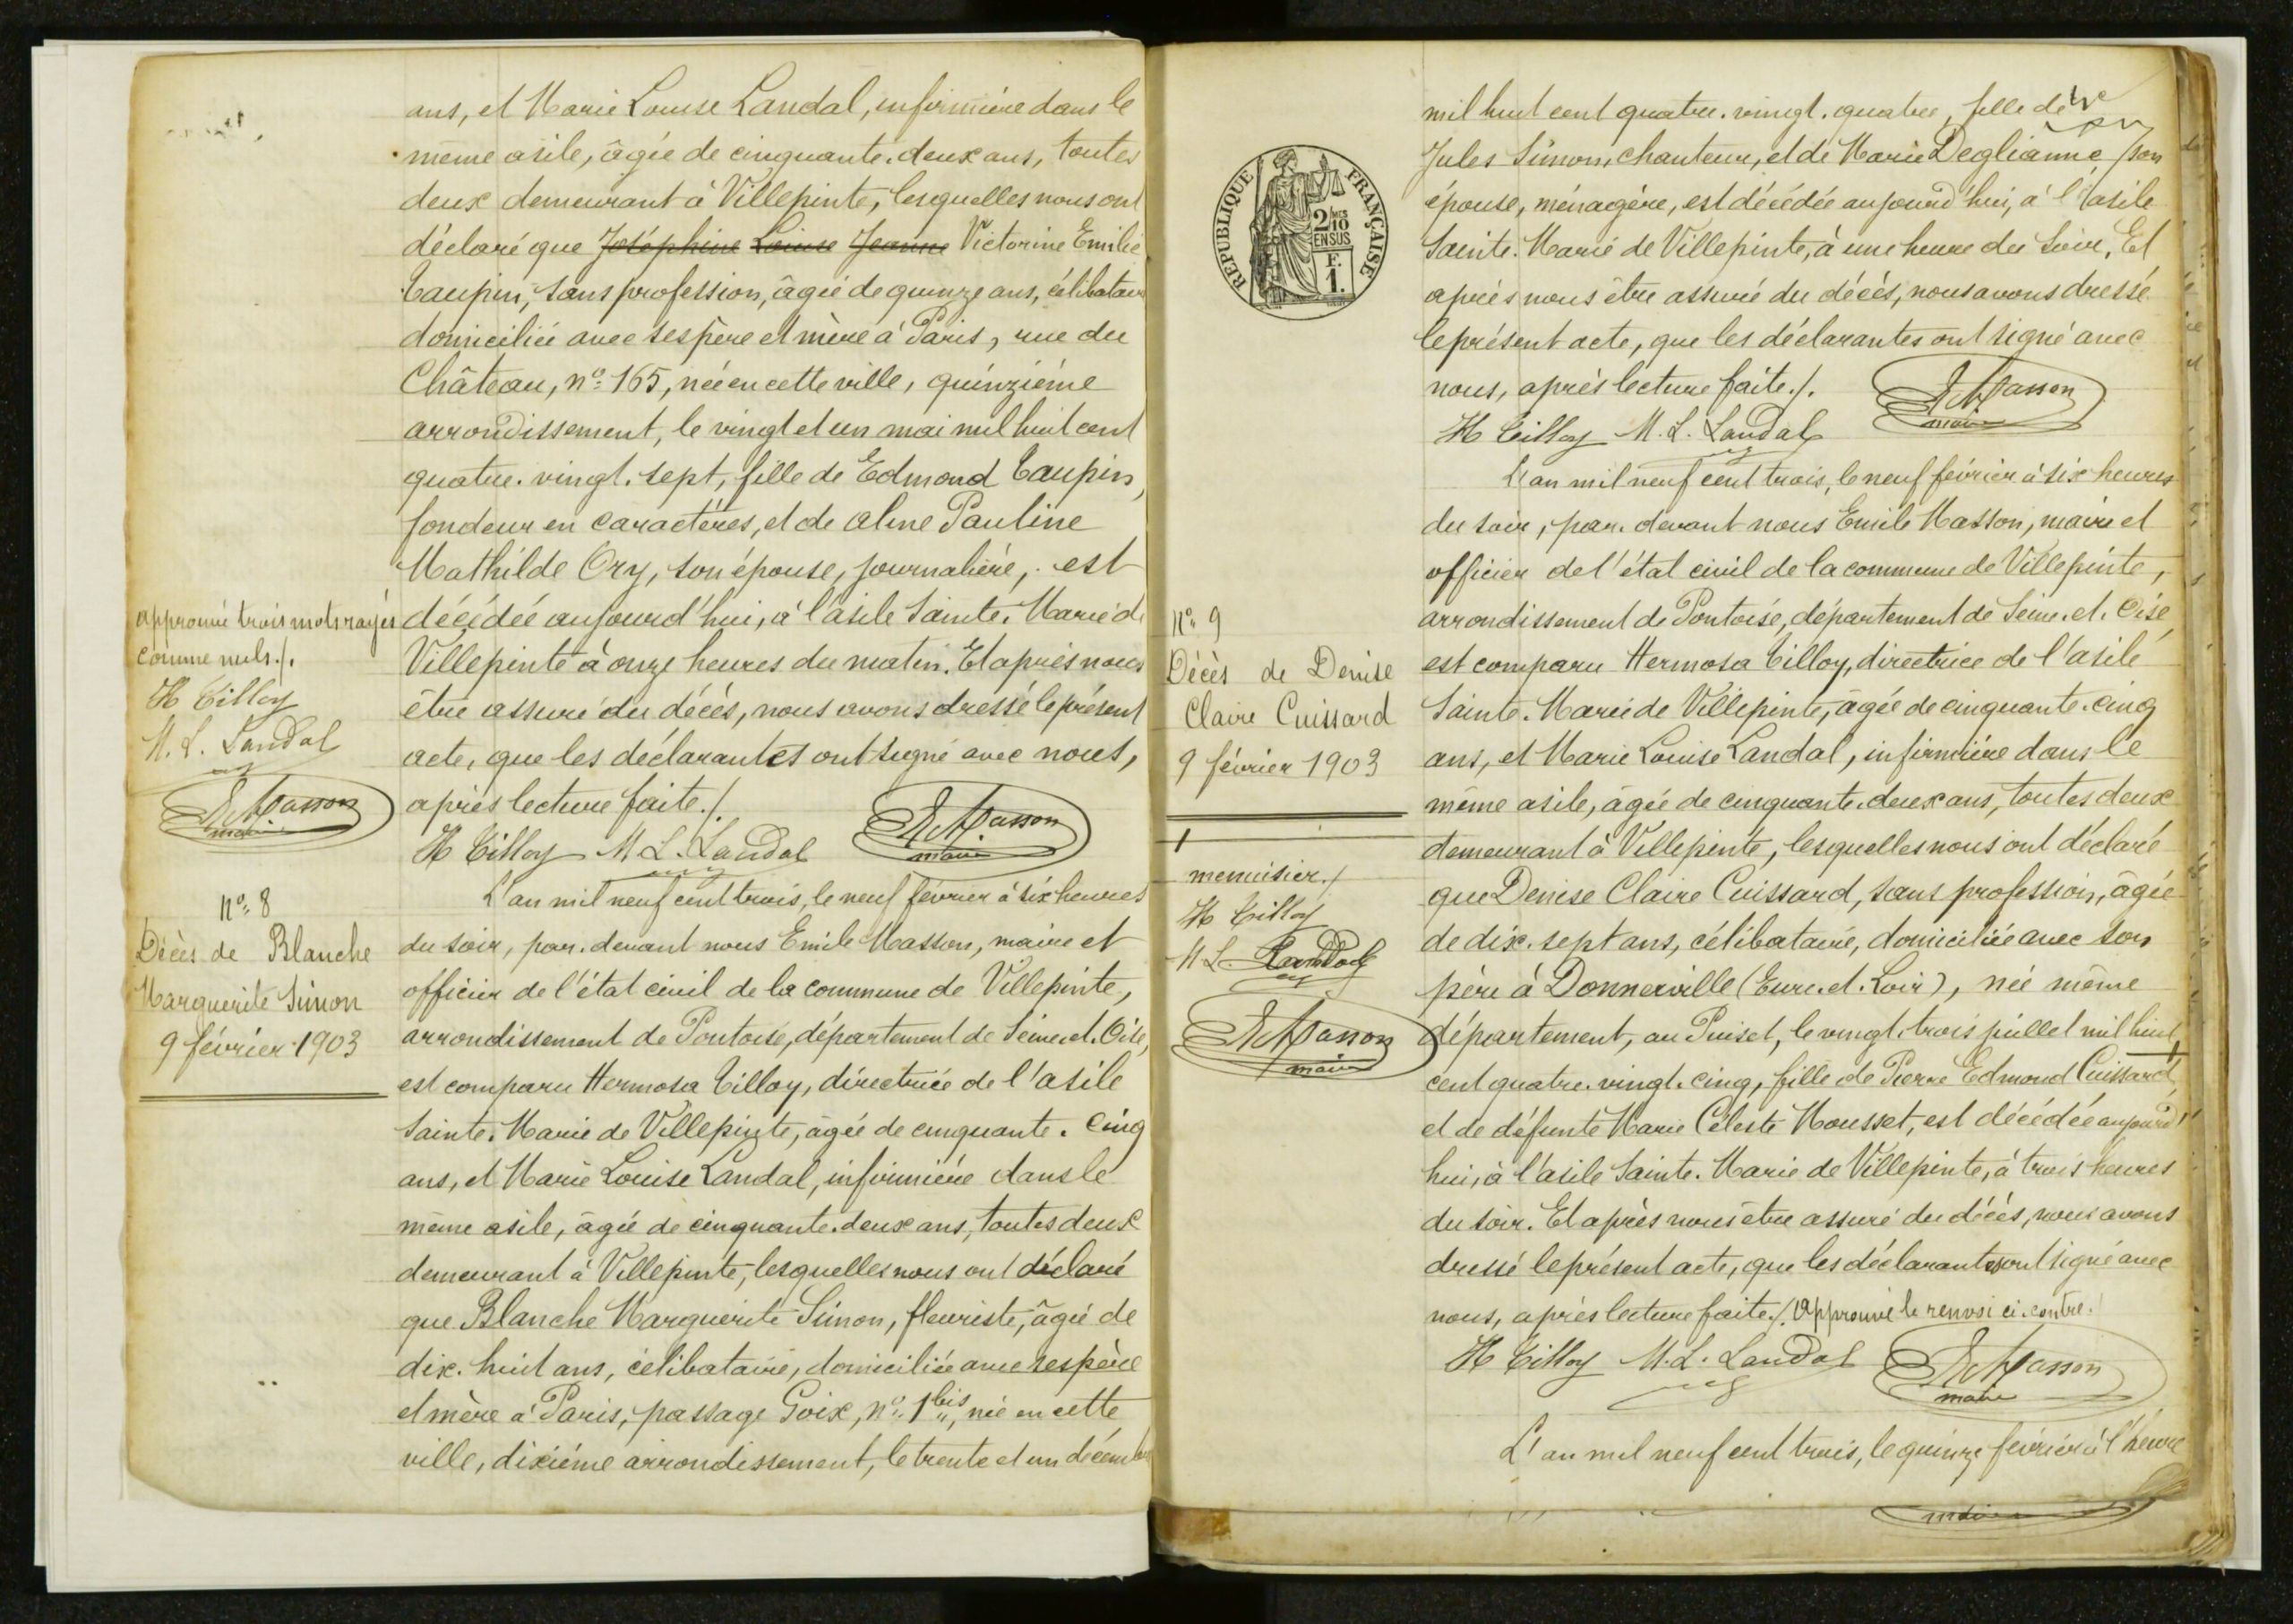 ans, et Marie Louise Landal, infirmière dans le
même asile, âgée de cinquante-deux ans, toutes
deux demeurant à Villepinte, lesquelles nous ont
déclaré que Joséphine Louise Jeanne Victorine Emilie
Taupin, sans profession, âgée de quinze ans, célibataire
domiciliée avec ses père et mère à Paris, rue du
Château, n° 165, née en cette ville, quinzième
arrondissement, le vingt et un mai mil huit cent
quatre-vingt-sept, fille de Edmond Taupin,
fondeur en caractères, et de Aline Pauline
Mathilde Ory, son épouse, journalière, est
décédée aujourd'hui, à l'asile Sainte-Marie de
Villepinte à onze heures du matin. Et après nous
être assuré du décès, nous avons dressé le présent
acte, que les déclarantes ont signé avec nous,
après lecture faite./.
H Tilloy M. L. Landal E Masson
maire
approuvé trois mots rayés
comme nuls./.
H Tilloy
M. L. Landal
E Masson
maire
N° 8
Décès de Blanche
Marguerite Simon
9 février 1903
L'an mil neuf cent trois, le neuf février à six heures
du soir, par-devant nous Emile Masson, maire et
officier de l'état civil de la commune de Villepinte,
arrondissement de Pontoise, département de Seine-et-Oise,
est comparu Hermosa Tilloy, directrice de l'asile
Sainte-Marie de Villepinte, âgée de cinquante-cinq
ans, et Marie Louise Landal, infirmière dans le
même asile, âgée de cinquante-deux ans, toutes deux
demeurant à Villepinte, lesquelles nous ont déclaré
que Blanche Marguerite Simon, fleuriste, âgée de
dix-huit ans, célibataire, domiciliée avec ses père
et mère à Paris, passage Goix, n° 1 bis, née en cette
ville, dixième arrondissement, le trente et un décembre
mil huit cent quatre-vingt-quatre, fille de
Jules Simon, chanteur, et de Marie Deglianne, son
épouse, ménagère, est décédée aujourd'hui, à l'asile
Sainte-Marie de Villepinte, à une heure du soir. Et
après nous être assuré du décès, nous avons dressé
le présent acte, que les déclarantes ont signé avec
nous, après lecture faite./.
H Tilloy M. L. Landal E Masson
maire
RÉPUBLIQUE FRANÇAISE
2/10
EN SUS
F.
1.
N° 9
Décès de Denise
Claire Cuissard
9 février 1903
L'an mil neuf cent trois, le neuf février à six heures
du soir, par-devant nous Emile Masson, maire et
officier de l'état civil de la commune de Villepinte,
arrondissement de Pontoise, département de Seine-et-Oise
est comparu Hermosa Tilloy, directrice de l'asile
Sainte-Marie de Villepinte, âgée de cinquante-cinq
ans, et Marie Louise Landal, infirmière dans le
même asile, âgée de cinquante-deux ans, toutes deux
demeurant à Villepinte, lesquelles nous ont déclaré
que Denise Claire Cuissard, sans profession, âgée
de dix-sept ans, célibataire, domiciliée avec son
père à Donnerville (Eure-et-Loir), née même
département, au Puiset, le vingt-trois juillet mil huit
cent quatre-vingt-cinq, fille de Pierre Edmond Cuissard,
et de défunte Marie Céleste Mousset, est décédée aujourd'
hui, à l'asile Sainte-Marie de Villepinte, à trois heures
du soir. Et après nous être assuré du décès, nous avons
dressé le présent acte, que les déclarantes ont signé avec
nous, après lecture faite./. Approuvé le renvoi ci-contre.
H Tilloy M. L. Landal E Masson
maire
menuisier./
H Tilloy
M L. Landal
E Masson
maire
L'an mil neuf cent trois, le quinze février à l'heure
maire